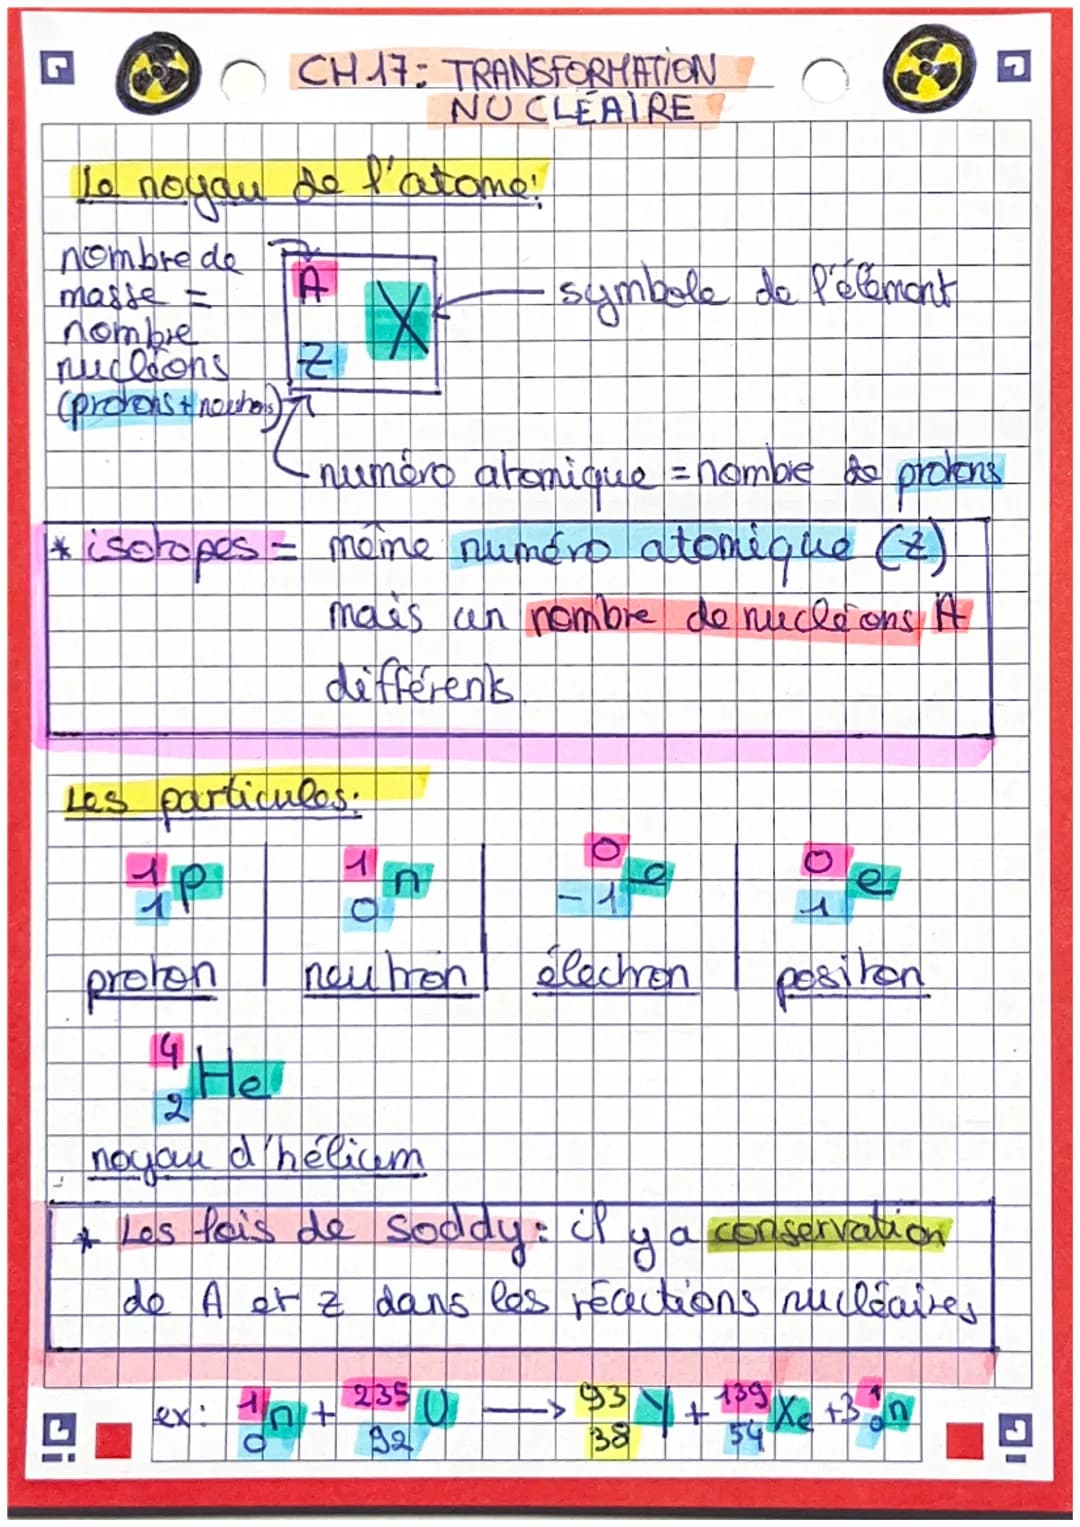 CH 17: TRANSFORMATION
NUCLÉAIRE
Le noyau de l'atome:
nombre de
masse =
nombre
nucléons
(protons + neutrons)
A
Z
X
symbole de l'élément
numéro atomique = nombre de protons
* isotopes = même numéro atomique (Z)
mais un nombre de nucléons A
différents.
Les particules:
1 1 0 0
p n e e
1 0 -1 1
proton neutron électron positon
4
He
2
noyau d'hélium
* Les lois de Soddy: il y a conservation
de A et Z dans les réactions nucléaires
ex: ¹₀n + ²³⁵₉₂U → ⁹³₃₈Y + ¹³⁹₅₄Xe + 3 ¹₀n